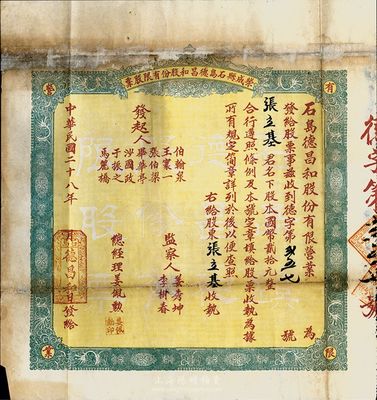 榮成縣石島德昌和股份有限股票
石島德昌和股份有限營業 為
發給股票事茲收到德字第 號
張立基君名下股本國幣貳拾元整
合行遵照條例及本號定章填給股票收執為據
所有規定簡章詳列於後以便查照
右給股東張立基收執
發起人
伯翰泉
王寰一
張伯梁
畢華亭
于振之
馬麗橋
監察人
姜秀坤
李樹春
總經理姜毓勲
中華民國二十八年
德昌和
發給
有
限
業
德字第
號